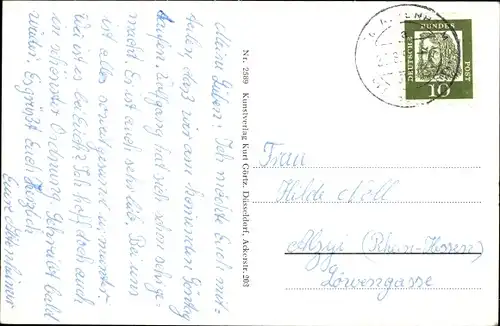 Meine Lieben! Ich möchte Euch mit-
teilen, daß wir am kommenden Sonntag
taufen. Wolfgang hat sich schon sehr ge-
macht. Er ist auch sehr lieb. Bei uns
ist alles soweit gesund und munter.
Wie ist es bei Euch? Ich hoffe doch auch
in schönster Ordnung. Schreibt bald
wieder. Es grüßt Euch herzlich
Eure
Nr. 2589 Kunstverlag Kurt Görtz, Düsseldorf, Ackerstr. 203
DEUTSCHE
BUNDES
POST
10
Frau
Hilde Noll
Alzey (Rhein-Hessen)
Löwengasse